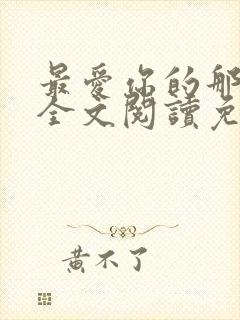 最愛你的那
全文閱讀免
黃不了